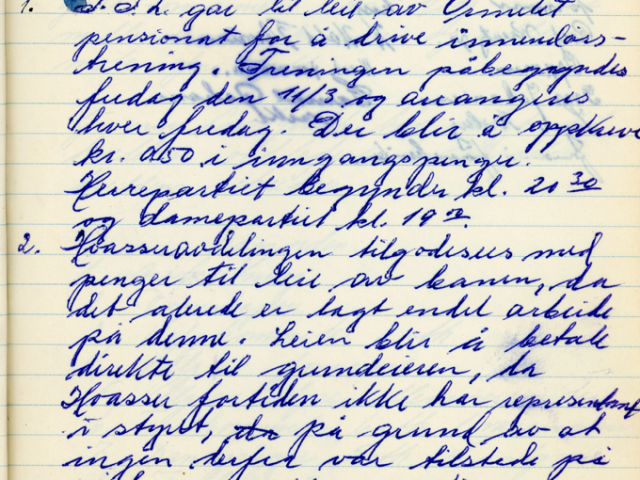 1. I.I.L. går til leie av Ormelet
pensionat for å drive innendørs-
trening. Treningen påbegyndes
fredag den 11/3 og arrangeres
hver fredag. Der blir å oppkreve
kr. 0.50 i inngangspenger.
Herrepartiet begynder kl. 20 30
og damepartiet kl. 19
2. Hoasseravdelingen tilgodesees med
penger til leie av banen, da
det allerede er lagt endel arbeide
på denne. Leien blir å betale
direkte til grundeieren, da
Hoasser fortiden ikke har representant
i styret, da på grund av at
ingen derfra var tilstede på